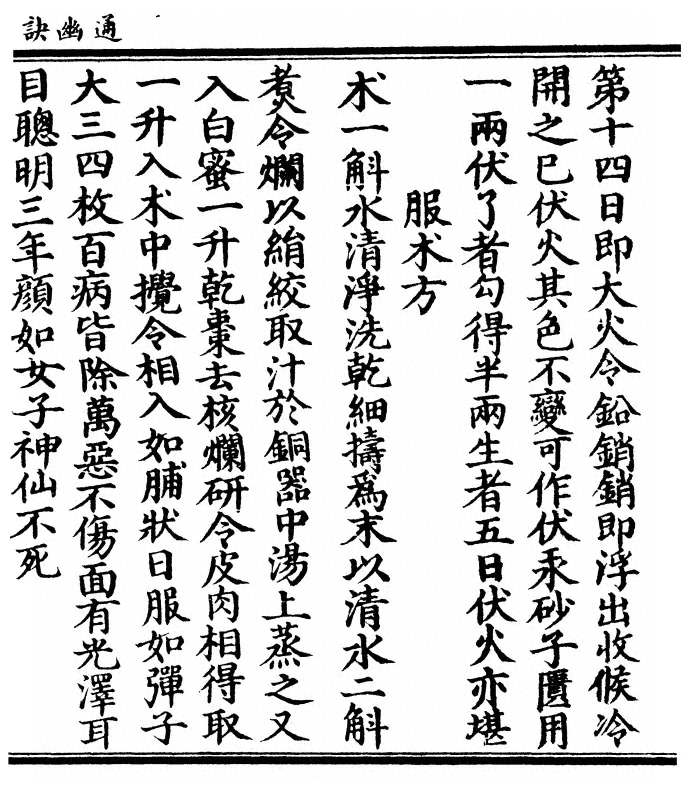 通幽訣
第十四日即大火令鉛銷銷即浮出收候冷
開之巳伏火其色不變可作伏汞砂子匱用
一兩伏了者勾得半兩生者五日伏火亦堪
服术方
术一斛水清淨洗乾細擣為末以清水二斛
煑令爛以絹絞取汁於銅器中湯上蒸之又
入白蜜一升乾棗去核爛研令皮肉相得取
一升入术中攪令相入如脯狀日服如彈子
大三四枚百病皆除萬惡不傷面有光澤耳
目聰明三年顏如女子神仙不死